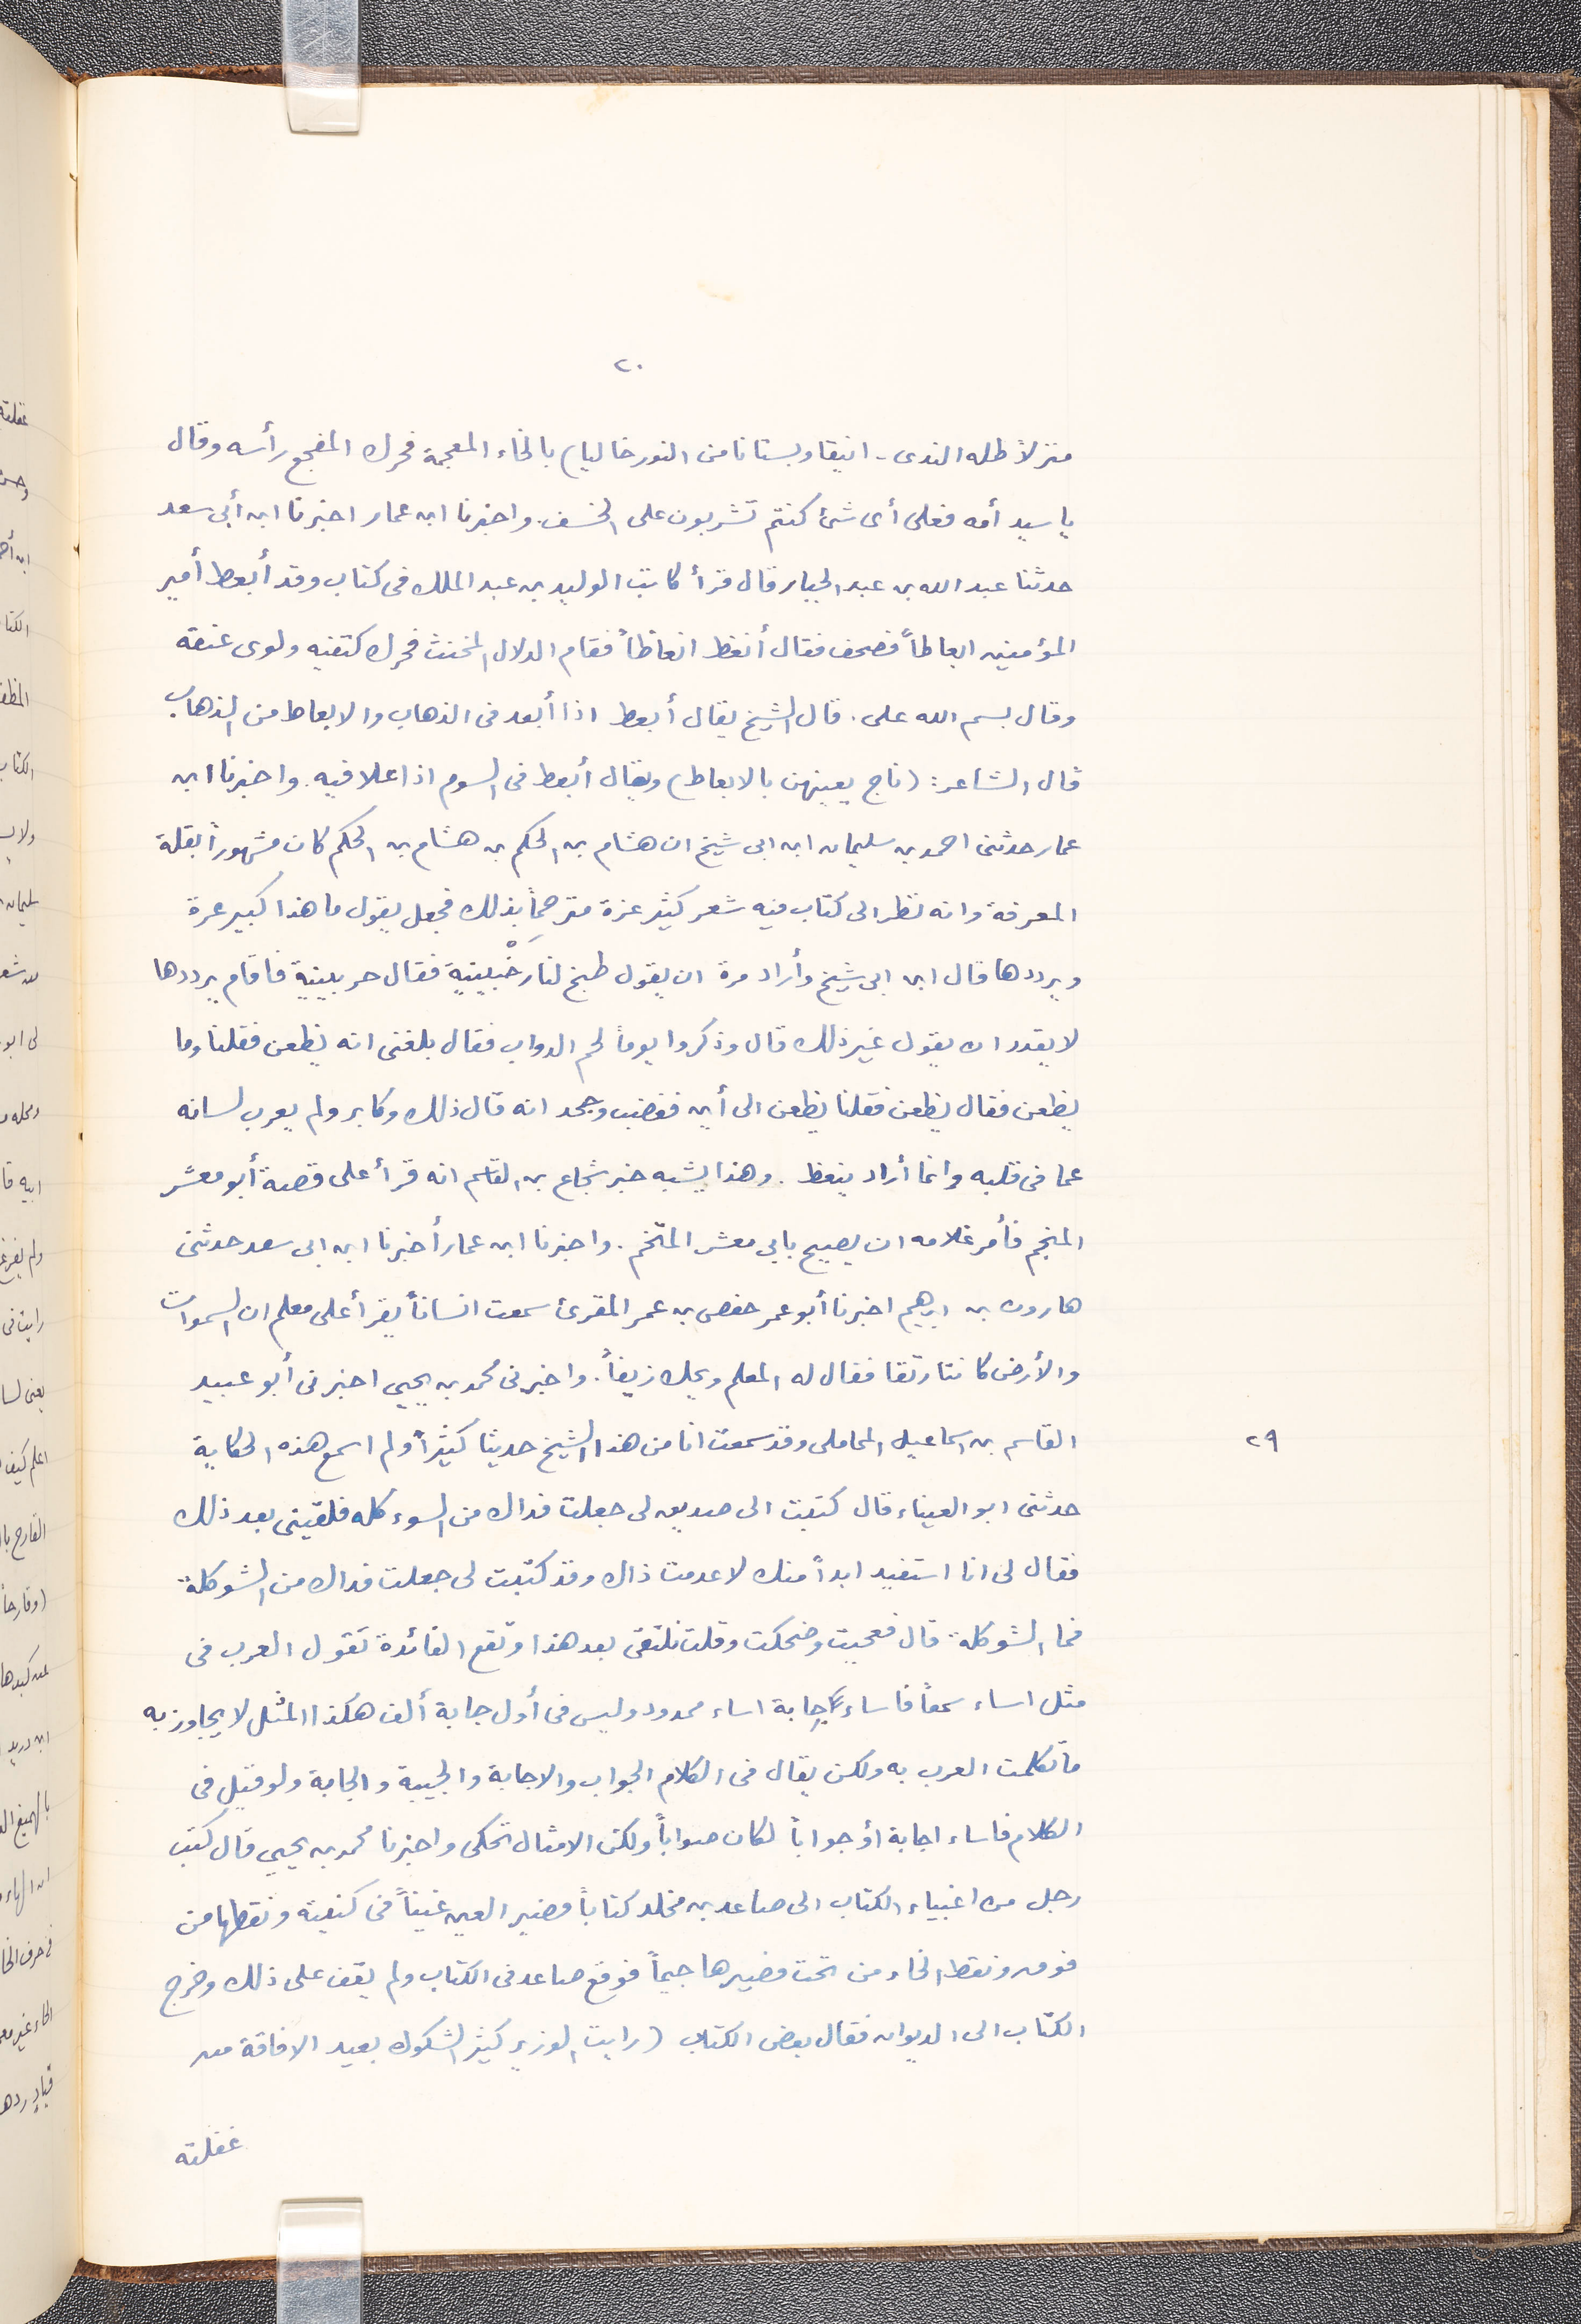 ٢٠
منزلاً طله الندى - انيقا وبستانا من النور خاليا) بالخاء المعجمة فحرك المفجع رأسه وقال
يا سيد أمه فعلى أى شئ كنتم تشربون على الخسف. واخبرنا ابن عمار اخبرنا ابن أبى سعد
حدثنا عبد الله بن عبد الجبار قال قرأ كاتب الوليد بن عبد الملك فى كتاب وقد أبعط أمير
المؤمنين ابعاطاً فصحف فقال أنعظ انعاظاً فقام الدلال المخنث فحرك كتفيه ولوى عنقه
وقال بسم الله على. قال الشيخ يقال أبعط اذا أبعد فى الذهاب والابعاط من الذهاب
قال الشاعر: (ناج يعينهن بالابعاط) ويقال أبعط فى السوم اذا علا فيه. واخبرنا ابن
عمار حدثنى احمد بن سليمان ابن ابى شيخ ان هشام بن الحكم بن هشام بن الحكم كان مشهوراً بقلة
المعرفة وانه نظر الى كتاب فيه شعر كثير عزة مترجماً بذلك فجعل يقول ما هذا كبير عرة
ويرددها قال ابن ابى شيخ وأراد مرة ان يقول طبخ لنا زَخْبينية فقال حربيبية فاقام يرددها
لا يقدر ان يقول غير ذلك قال وذكروا يوماً لحم الدواب فقال بلغنى انه يظعن فقلنا وما
يظعن فقال يظعن فقلنا يظعن الى أين فغضب وجحد انه قال ذلك وكابر ولم يعرب لسانه
عما فى قلبه وانما أراد ينعظ. وهذا يشبه خبر شجاع بن القاسم انه قرأ على قصة أبو معشر
المنجم فأمر غلامه ان يصيح بابى معشر المتّخم. واخبرنا ابن عمار أخبرنا ابن ابى سعد حدثنى
هارون بن ابرهيم اخبرنا أبو عمر حفص بن عمر المقرئ سمعت انساناً يقرأ على معلم ان السموات
والأرض كانتا رتقا فقال له المعلم ويحك زيفاً. واخبرنى محمد بن يحيى اخبرنى أبو عبيد
القاسم بن اسماعيل المحاملى وقد سمعت انا من هذا الشيخ حديثا كثيراً ولم اسمع هذه الحكاية
٢٩
حدثنى ابو العيناء قال كتبت الى صديق لى جعلت فداك من السوء كله فلقينى بعد ذلك
فقال لى انا استفيد ابداً منك لا عدمت ذاك وقد كتبت لى جعلت فداك من الشوكلة
فما الشوكلة قال فعجبت وضحكت وقلت نلتقى بعد هذا وتقع الفائدة تقول العرب فى
مثل اساء سمعاً فاساء جابة اساء ممدود وليس فى أول جابة ألف هكذا المثل لا يجاوز به
ما تكلمت العرب به ولكن يقال فى الكلام الجواب والاجابة والجيبة والجابة ولو قيل فى
الكلام فاساء اجابة أو جواباً لكان صواباً ولكن الامثال تحكى واخبرنا محمد بن يحيى قال كتب
رجل من اغبياء الكتاب الى صاعد بن مخلد كتاباً فصير العين غيناً فى كنيته ونقطها من
فوق ونقط الخاء من تحت فصيرها جيماً فوقع صاعد فى الكتاب ولم يقف على ذلك وخرج
الكتاب الى الديوان فقال بعض الكتاب (رايت الوزير كثير الشكوك بعيد الافاقة من
غفلته